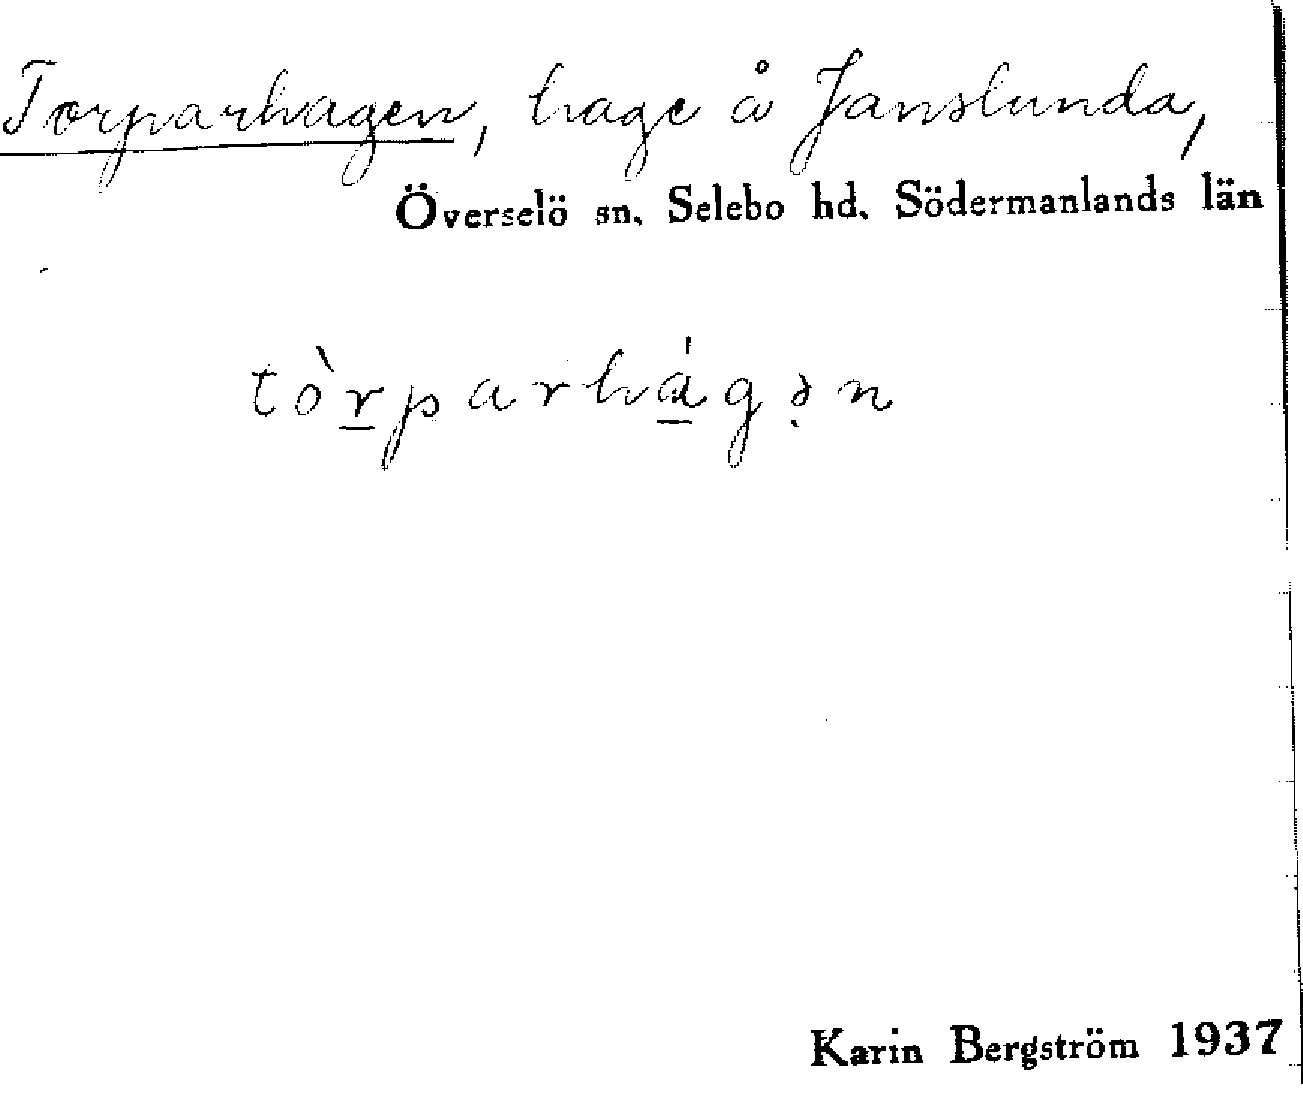 Torparhagen, hage å Janslunda,
Överselö sn. Selebo hd. Södermanlands län
tòr̲parhá̲gə̣n
Karin Bergström 1937